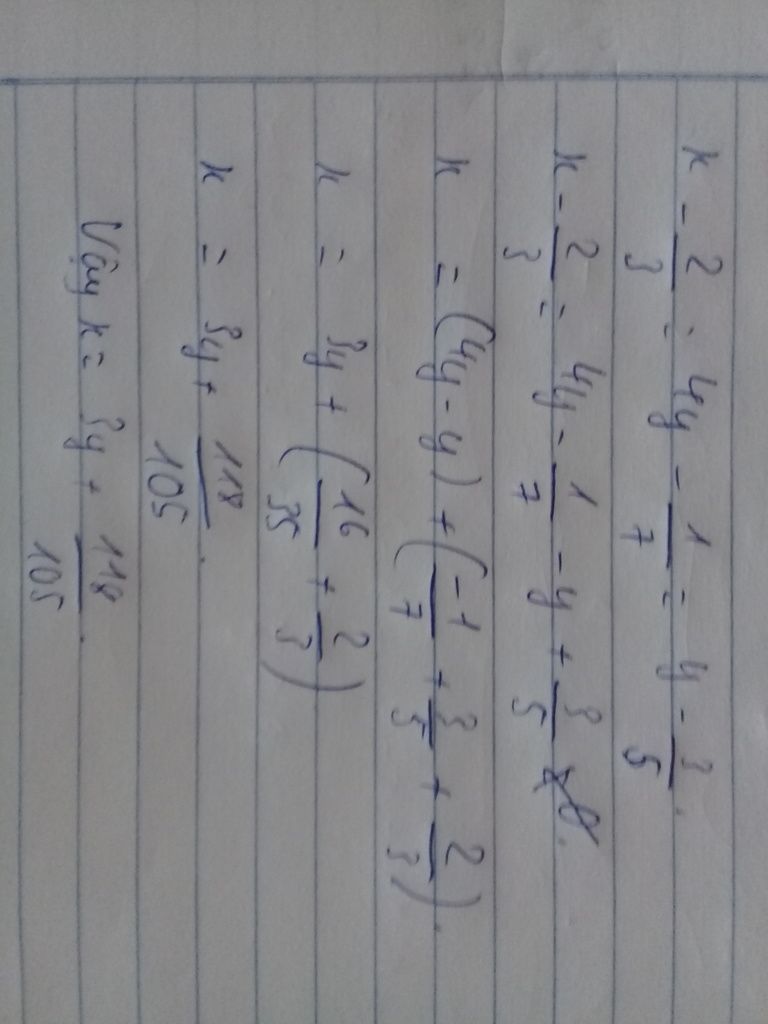 x - 2/3 = 4y - 1/7 = y - 3/5.
x - 2/3 = 4y - 1/7 - y + 3/5
x = (4y - y) + (-1/7 + 3/5 + 2/3).
x = 3y + (16/35 + 2/3)
x = 3y + 118/105.
Vậy x = 3y + 118/105.